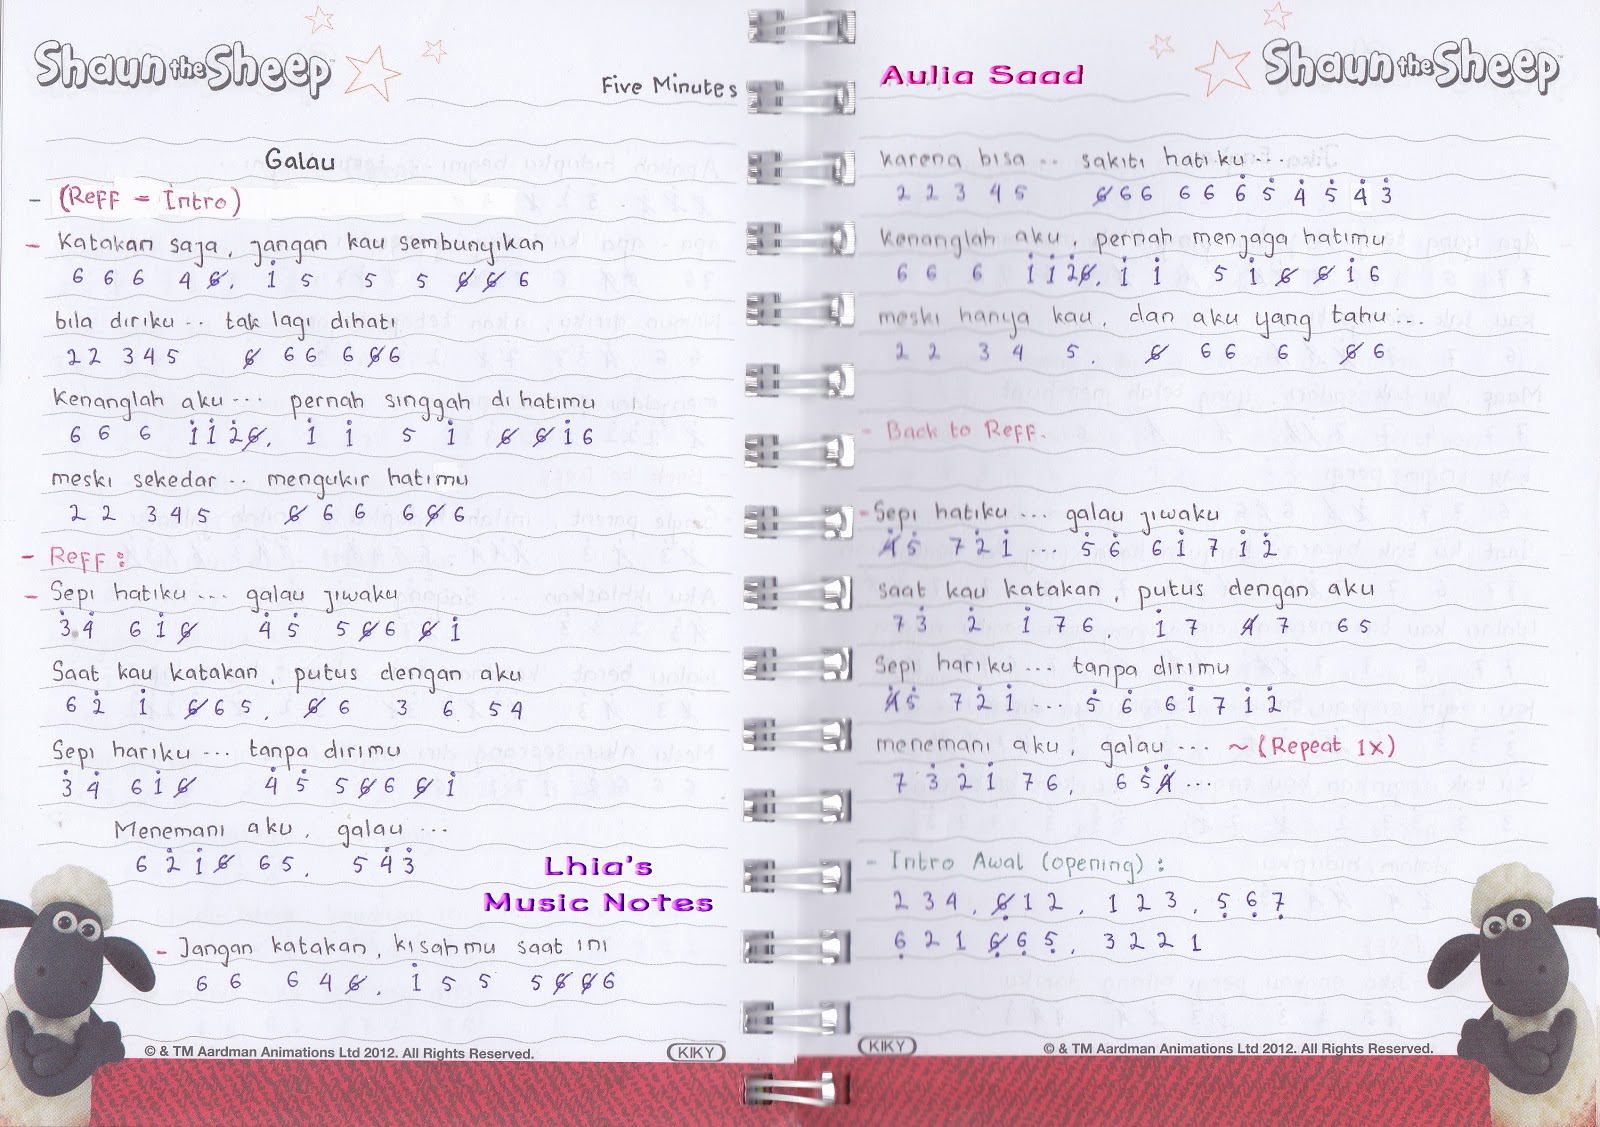 Shaun the Sheep
Five Minutes
Galau
- (Reff = Intro)
- Katakan saja, jangan kau sembunyikan
6 6 6 4 6̸, 1̇ 5 5 5 6̸ 6̸ 6
bila diriku .. tak lagi dihati
2 2 3 4 5 6̸ 6 6 6 6̸ 6
Kenanglah aku ... pernah singgah di hatimu
6 6 6 1̇ 1̇ 2̇ 6̸, 1̇ 1̇ 5 1̇ 6̸ 6̸ 1̇ 6
meski sekedar .. mengukir hatimu
2 2 3 4 5 6̸ 6 6 6 6̸ 6
- Reff :
- Sepi hatiku ... galau jiwaku
3̇ 4̇ 6 1̇ 6̸ 4̇ 5̇ 5 6̸ 6 6̸ 1̇
Saat kau katakan, putus dengan aku
6 2̇ 1̇ 6̸ 6 5, 6̸ 6 3 6 5 4
Sepi hariku ... tanpa dirimu
3̇ 4̇ 6 1̇ 6̸ 4̇ 5̇ 5 6̸ 6 6̸ 1̇
Menemani aku, galau ...
6 2̇ 1̇ 6̸ 6 5, 5 4̇ 3̇
Lhia's
Music Notes
- Jangan katakan, kisahmu saat ini
6 6 6 4 6̸, 1̇ 5 5 5 6̸ 6̸ 6
© & TM Aardman Animations Ltd 2012. All Rights Reserved.
KIKY
Aulia Saad
Shaun the Sheep
karena bisa .. sakiti hatiku ...
2 2 3 4 5 6̸ 6 6 6 6 6̇ 5̇ 4̇ 5̇ 4̇ 3̇
Kenanglah aku, pernah menjaga hatimu
6 6 6 1̇ 1̇ 2̇ 6̸, 1̇ 1̇ 5 1̇ 6̸ 6̸ 1̇ 6
meski hanya kau, dan aku yang tahu ...
2 2 3 4 5, 6̸ 6 6 6 6̸ 6
- Back to Reff.
- Sepi hatiku ... galau jiwaku
4̸̇ 5̇ 7 2̇ 1̇ ... 5̇ 6̇ 6 1̇ 7 1̇ 2̇
saat kau katakan, putus dengan aku
7 3̇ 2̇ 1̇ 7 6, 1̇ 7 4̸ 7 6 5
Sepi hariku ... tanpa dirimu
4̸̇ 5̇ 7 2̇ 1̇ ... 5̇ 6̇ 6 1̇ 7 1̇ 2̇
menemani aku, galau ... ~ (Repeat 1x)
7 3̇ 2̇ 1̇ 7 6, 6 5̇ 4̸̇ ...
- Intro Awal (opening) :
2 3 4, 6̸̣ 1 2, 1 2 3, 5̣ 6̣ 7̣
6̣ 2 1 6̸̣ 6̣ 5̣, 3 2 2 1
KIKY
© & TM Aardman Animations Ltd 2012. All Rights Reserved.